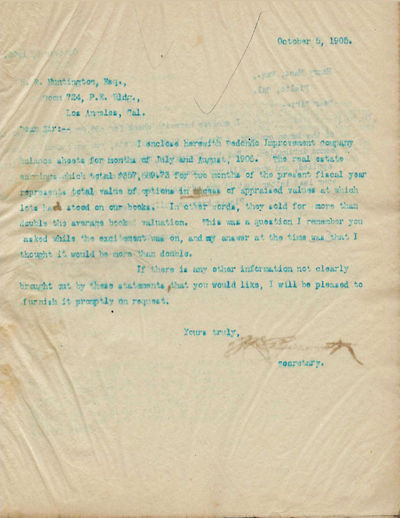 October 5, 1905.
H. E. Huntington, Esq.,
Room 724, P.E. Bldg.,
Los Angeles, Cal.
Dear Sir:--
I enclose herewith Redondo Improvement company
balance sheets for months of July and August, 1905. The real estate
earnings which total for two months of the present fiscal year
represents total value of options in excess of appraised values at which
lots had stood on our books. In other words, they sold for more than
double the average booked valuation. This was a question I remember you
asked while the excitement was on, and my answer at the time was that I
thought it would be more than double.
If there is any other information not clearly
brought out by these statements that you would like, I will be pleased to
furnish it promptly on request.
Yours truly,
secretary.